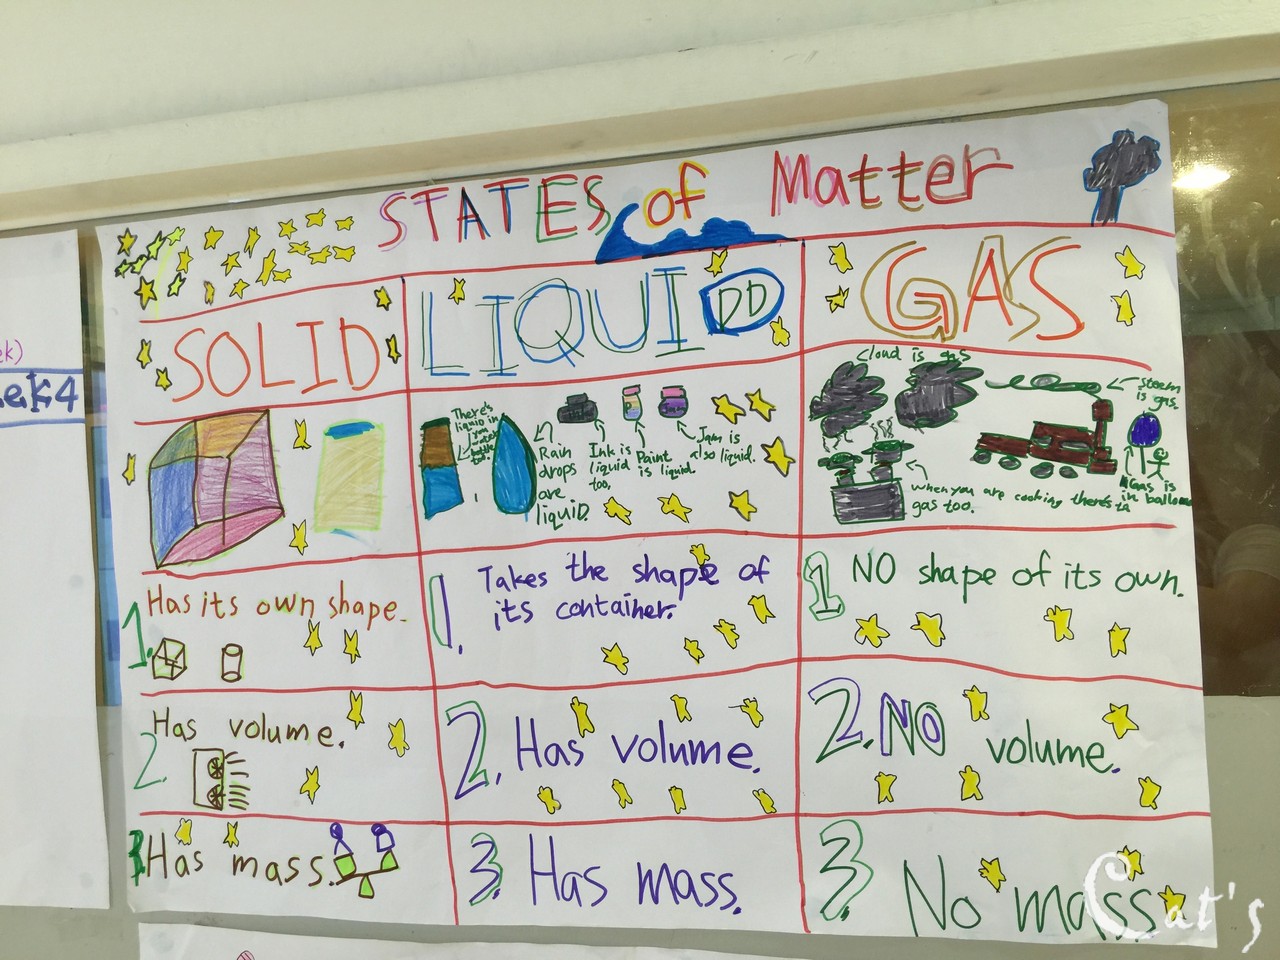 STATES of Matter
ek)
eek4
SOLID
LIQUIDD
GAS
There's
liquid in
you
water
bottle
too.
Rain
drops
are
liquid.
Ink is
liquid
too,
Paint
is liquid.
Jam
Jam is
also liquid.
Cloud is gas
Steam
is gas.
Gas is
in balloons
when you are cooking there's
gas too.
1. Has its own shape.
1. Takes the shape of
its container.
1 NO shape of its own.
2 Has volume.
2. Has volume.
2. NO volume.
3 Has mass.
3. Has mass.
3. No mass
Cat's